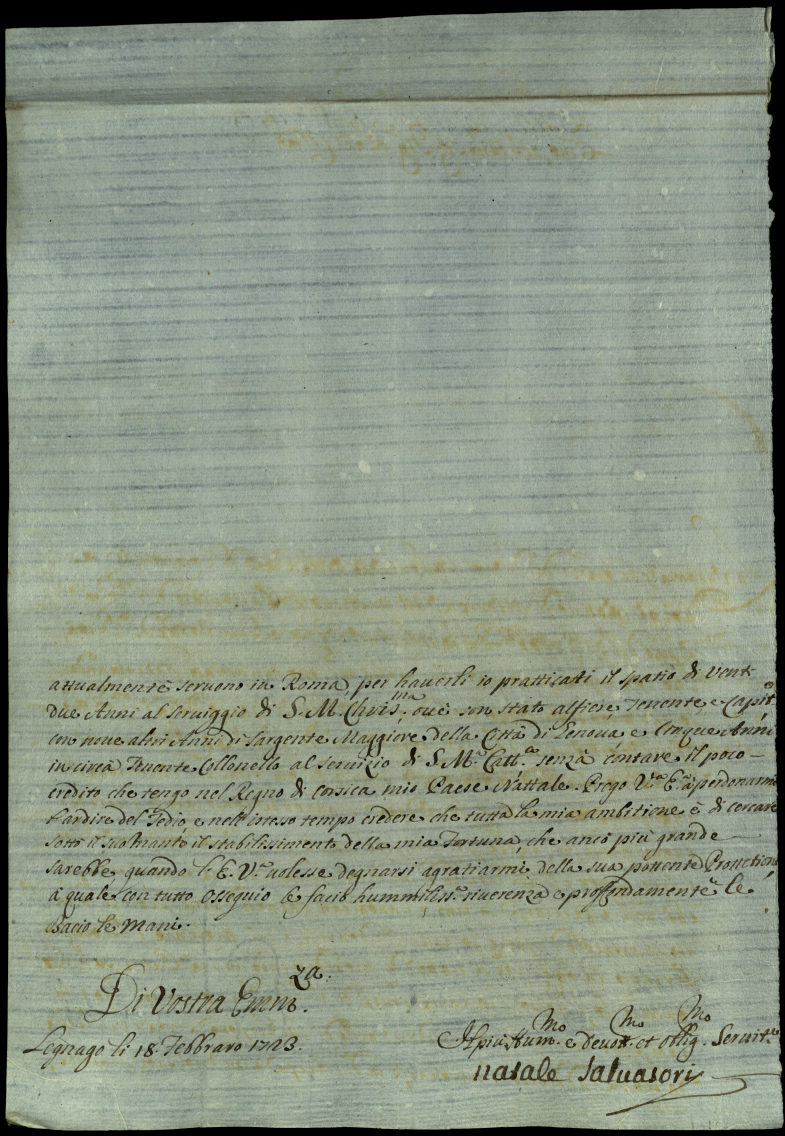 attualmente seruono in Roma, per hauerli io pratticati il spatio di vent
due Anni al seruiggio di S. M. Chris.ma, oue son stato alfiere Tenente e Capit.o
con noue altri Anni di Sargente Maggiore della Città di Genoua e Cinque Anni
in circa Tenente Collonello al seruizio di S. M.a Catt.ca senzà contare il poco
credito che tengo nel Regno di Corsica mio Paese Nattale. Prego V.a E.a à perdonarmi
l'ardire del Tedio e nell'istesso tempo credere che tutta la mia ambitione è di cercare
sotto il suo Manto il stabilissimento della mia Fortuna, che anco più grande
sarebbe quando l'E. V.a uolesse degnarsi agratiarmi della sua potente Protetione
à quale con tutto Ossequio le facio hummiliss.a riuerenza e proffondamente le
Bacio le Mani.
Di Vostra Emin.za
Legnago li 18. Febbraro 1723.
Il più Hum.mo e deuot.mo et oblig.mo Seruit.e
natale saluatori